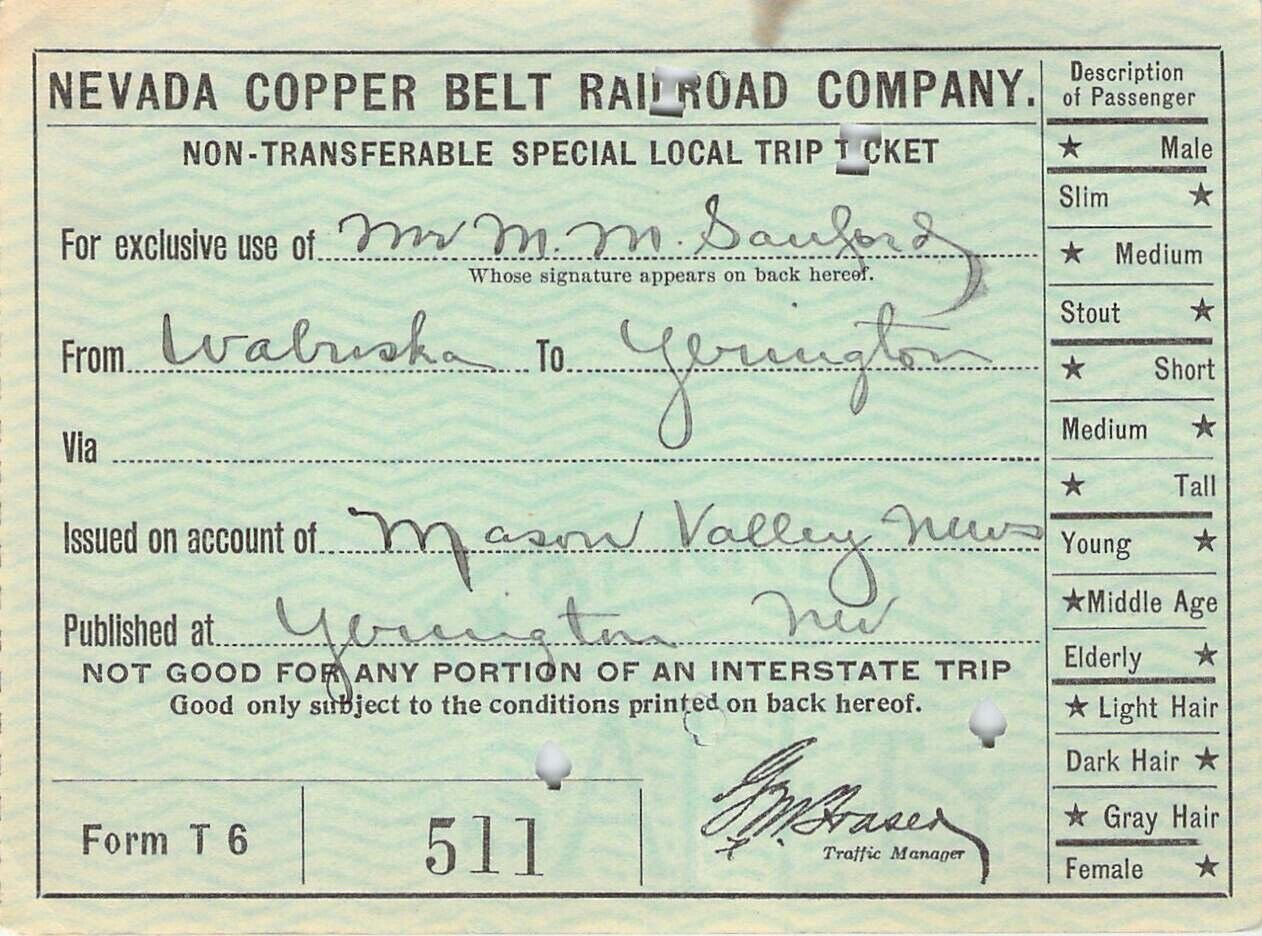 NEVADA COPPER BELT RAILROAD COMPANY.
NON-TRANSFERABLE SPECIAL LOCAL TRIP TICKET
For exclusive use of Mr M. M. Sanford
Whose signature appears on back hereof.
From Wabuska To Yerington
Via
Issued on account of Mason Valley News
Published at Yerington Nev
NOT GOOD FOR ANY PORTION OF AN INTERSTATE TRIP
Good only subject to the conditions printed on back hereof.
Form T 6
511
G M Fraser
Traffic Manager
Description
of Passenger
★ Male
Slim ★
★ Medium
Stout ★
★ Short
Medium ★
★ Tall
Young ★
★ Middle Age
Elderly ★
★ Light Hair
Dark Hair ★
★ Gray Hair
Female ★